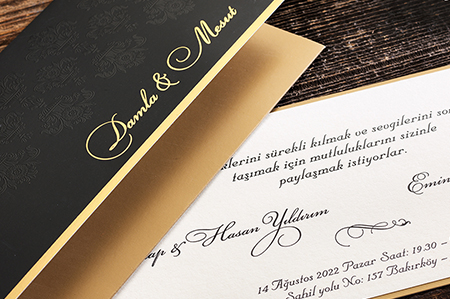 Damla & Mesut
klerini sürekli kılmak ve sevgilerini son
taşımak için mutluluklarını sizinle
paylaşmak istiyorlar.
Emin
ap & Hasan Yıldırım
14 Ağustos 2022 Pazar Saat: 19.30 -
Sahil yolu No: 157 Bakırköy